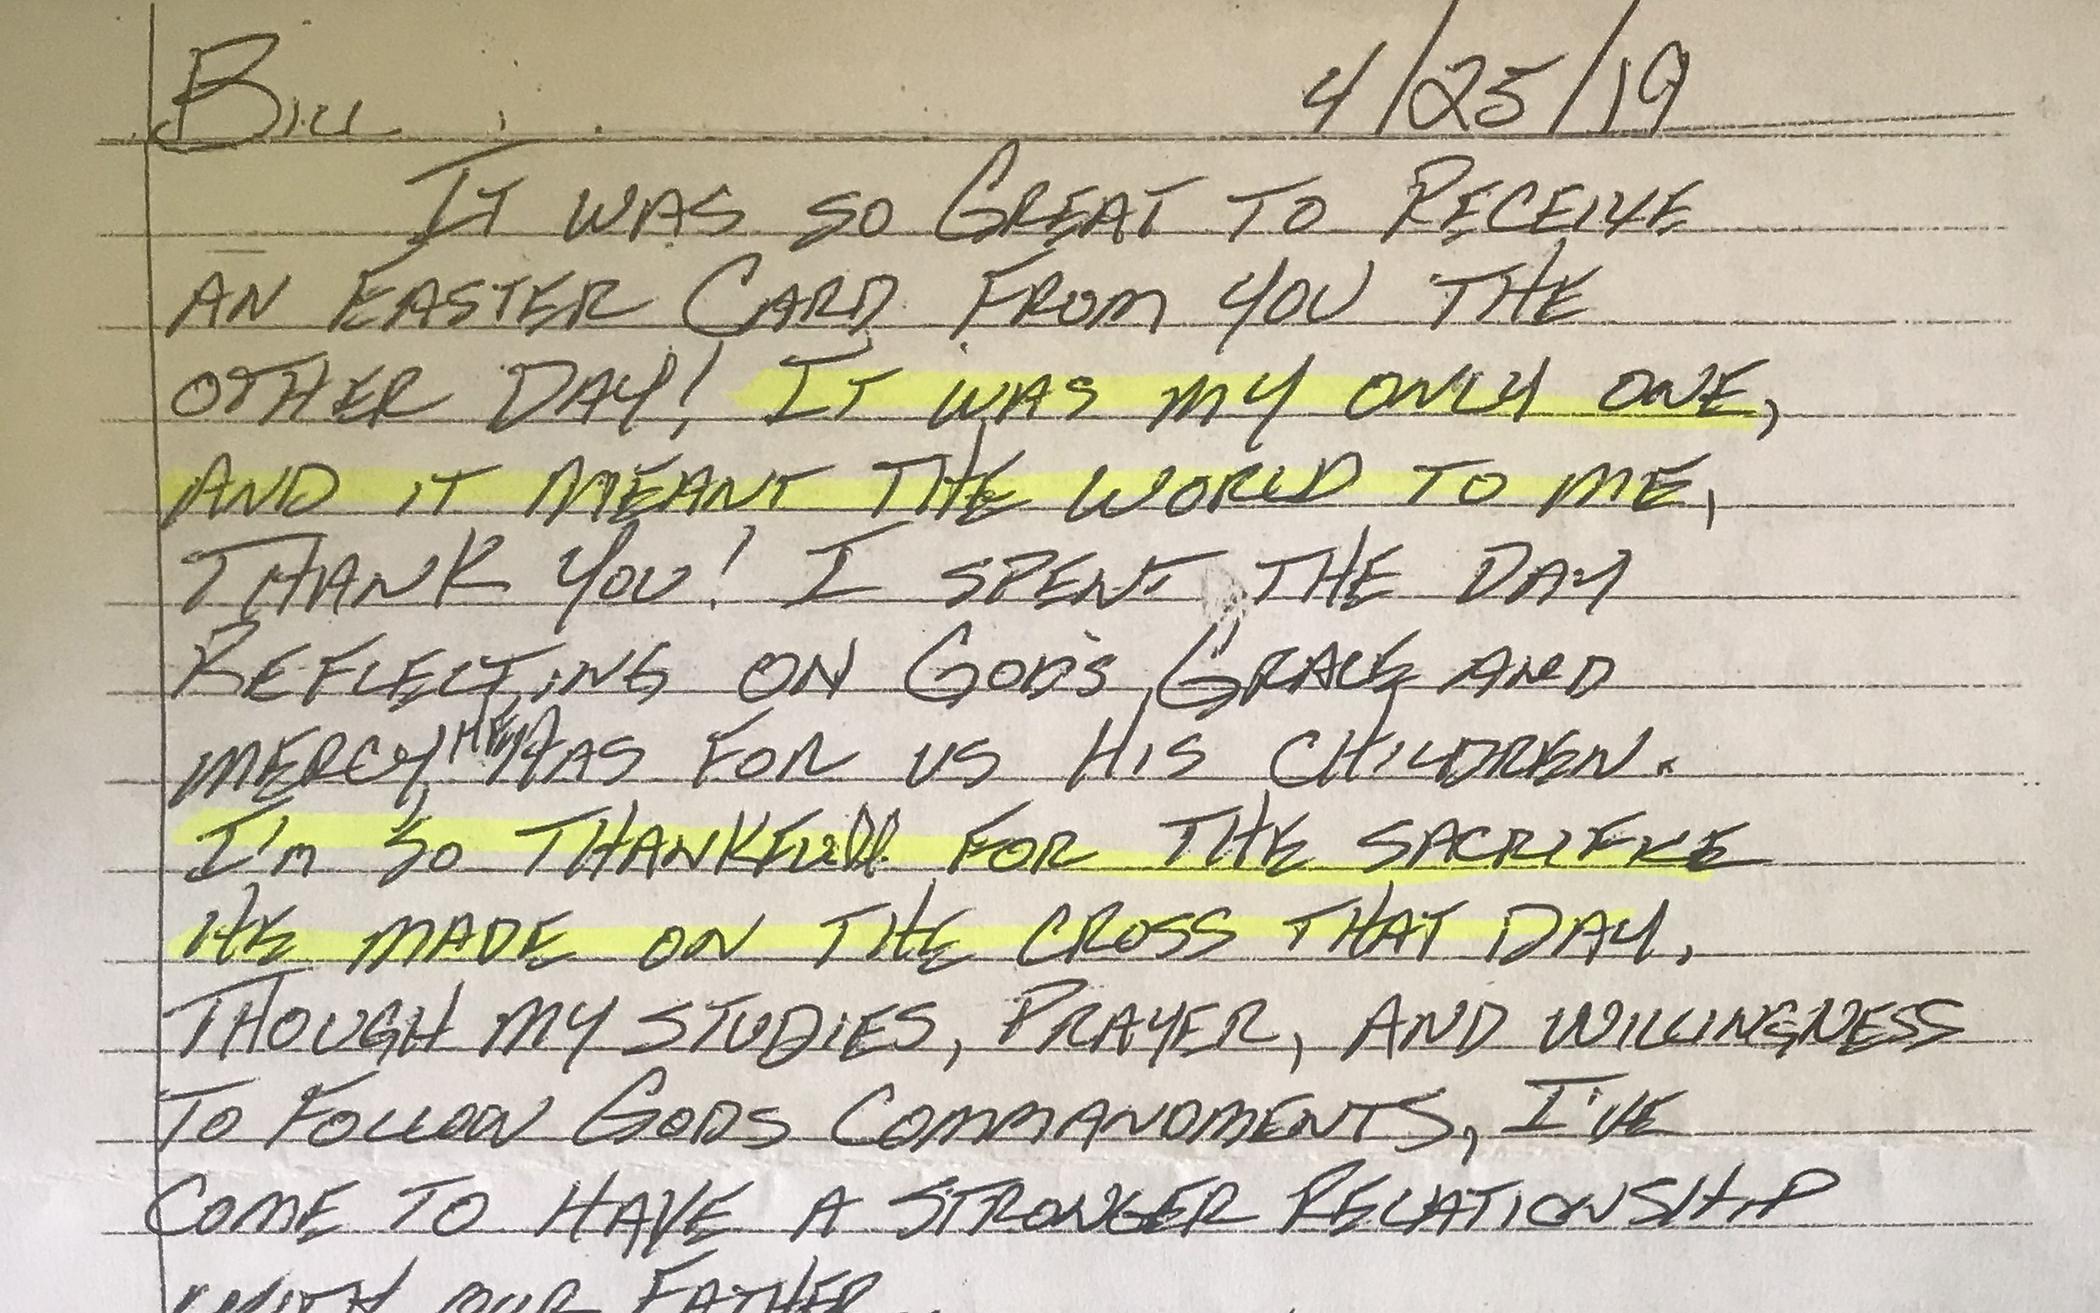 Bill 4/25/19
IT WAS SO GREAT TO RECEIVE
AN EASTER CARD FROM YOU THE
OTHER DAY! IT WAS MY ONLY ONE,
AND IT MEANT THE WORLD TO ME,
THANK YOU! I SPENT THE DAY
REFLECTING ON GOD'S GRACE AND
MERCY HE HAS FOR US HIS CHILDREN.
I'M SO THANKFULL FOR THE SACRIFICE
HE MADE ON THE CROSS THAT DAY.
THOUGH MY STUDIES, PRAYER, AND WILLINGNESS
TO FOLLOW GODS COMMANDMENTS, I'VE
COME TO HAVE A STRONGER RELATIONSHIP
WITH OUR FATHER